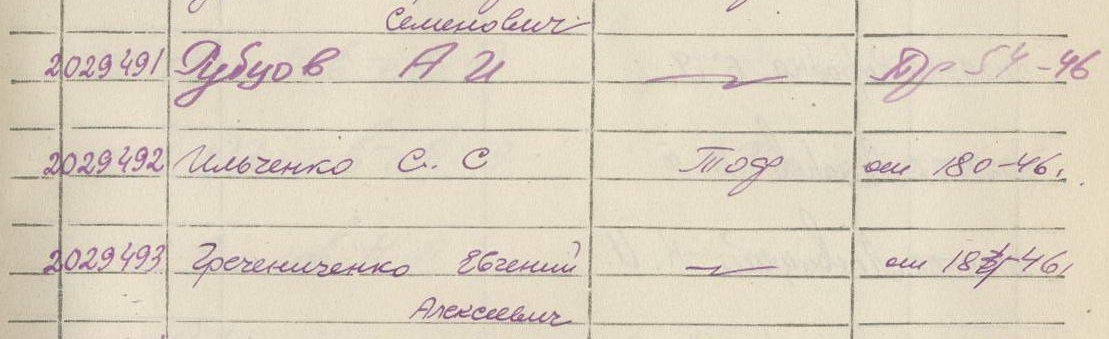 Семенович
2029491 Рубцов А И Пр 54-46
2029492 Ильченко С. С Тоф ом 180-46.
2029493 Гречениченко Евгений ом 18 -46.
Алексеевич